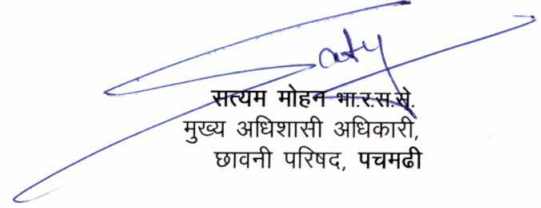 सत्यम मोहन भा.र.स.से.
मुख्य अधिशासी अधिकारी,
छावनी परिषद, पचमढी